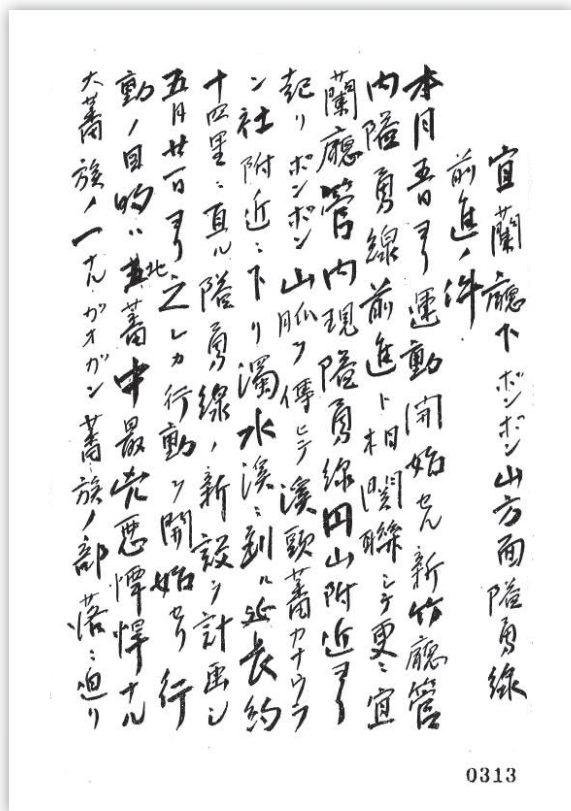 宜蘭廳下ボンボン山方面隘勇線
前進ノ件
本月五日ヨリ運動開始セル新竹廳管
内隘勇線前進ト相関聯シテ更ニ宜
蘭廳管内現隘勇線円山附近ヨリ
起リボンボン山脈ヲ傳ヒテ溪頭蕃カナウラ
ン社附近ニ下リ濁水溪ニ到ル延長約
十四里ニ亘ル隘勇線ノ新設ヲ計画シ
五月廿一日ヨリ之レカ行動ヲ開始セリ行
動ノ目的ハ北蕃中最兇悪慓悍ナル
大蕃族ノ一ナルガオガン蕃族ノ部落ニ迫リ
0313